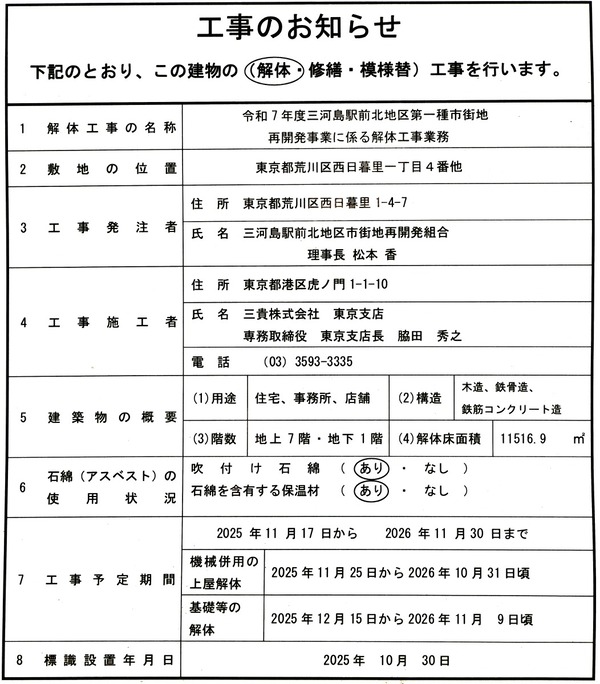 工事のお知らせ
下記のとおり、この建物の（解体・修繕・模様替）工事を行います。
1 解体工事の名称 令和7年度三河島駅前北地区第一種市街地
再開発事業に係る解体工事業務
2 敷地の位置 東京都荒川区西日暮里一丁目4番他
3 工事発注者 住所 東京都荒川区西日暮里1-4-7
氏名 三河島駅前北地区市街地再開発組合
理事長 松本 香
4 工事施工者 住所 東京都港区虎ノ門1-1-10
氏名 三貴株式会社 東京支店
専務取締役 東京支店長 脇田 秀之
電話 (03) 3593-3335
5 建築物の概要 (1)用途 住宅、事務所、店舗 (2)構造 木造、鉄骨造、
鉄筋コンクリート造
(3)階数 地上7階・地下1階 (4)解体床面積 11516.9 ㎡
6 石綿（アスベスト）の
使用状況
吹付け石綿 （ あり ・ なし ）
石綿を含有する保温材 （ あり ・ なし ）
7 工事予定期間 2025年11月17日から 2026年11月30日まで
機械併用の
上屋解体 2025年11月25日から2026年10月31日頃
基礎等の
解体 2025年12月15日から2026年11月 9日頃
8 標識設置年月日 2025年 10月 30日